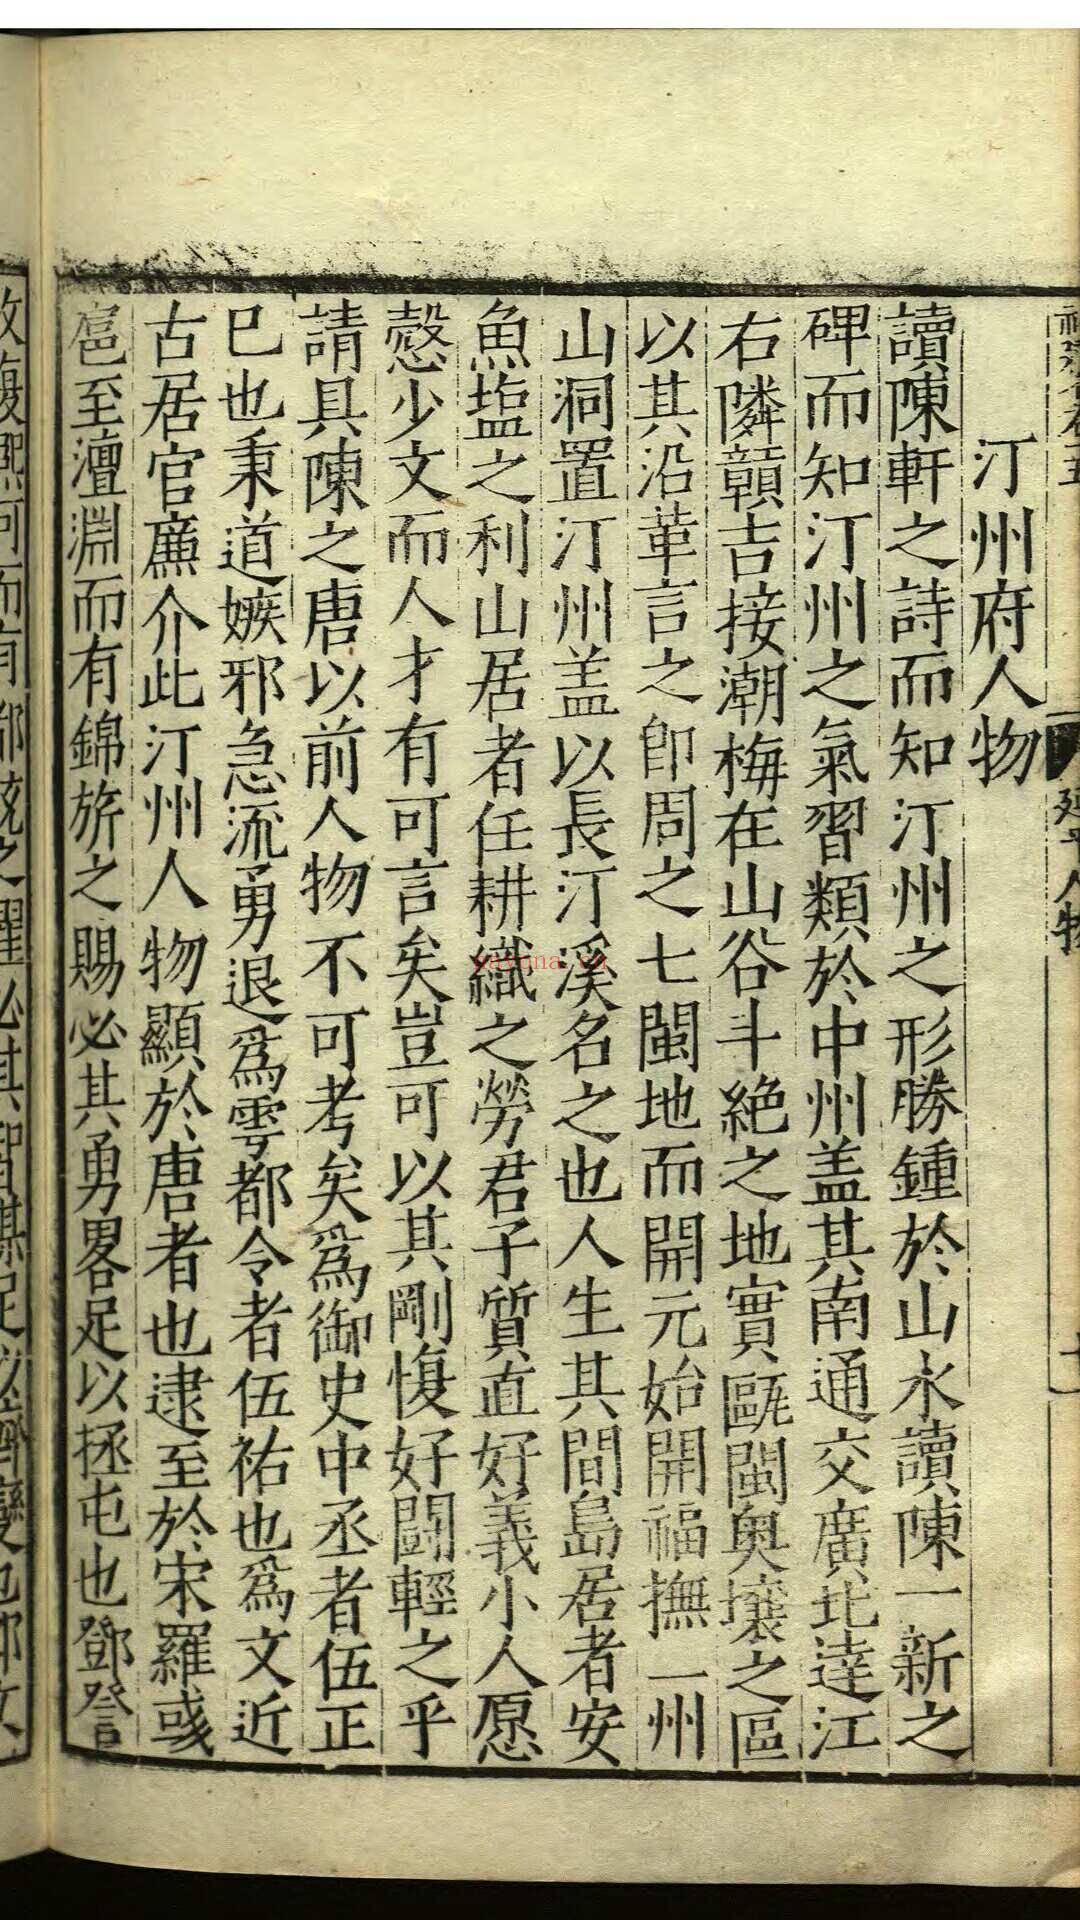 汀州府人物
讀陳軒之詩而知汀州之形勝鍾於山水讀陳一新之
碑而知汀州之氣習類於中州盖其南通交廣北達江
右隣贛吉接潮梅在山谷斗絶之地實甌閩奥壤之區
以其沿革言之卽周之七閩地而開元始開福撫一州
山洞置汀州盖以長汀溪名之也人生其間島居者安
魚塩之利山居者任耕織之勞君子質直好義小人愿
愨少文而人才有可言矣豈可以其剛愎好鬪輕之乎
請具陳之唐以前人物不可考矣爲御史中丞者伍正
巳也秉道嫉邪急流勇退爲雩都令者伍祐也爲文近
古居官亷介此汀州人物顯於唐者也逮至於宋羅彧
扈至澶淵而有錦旂之賜必其勇畧足以拯屯也鄧登